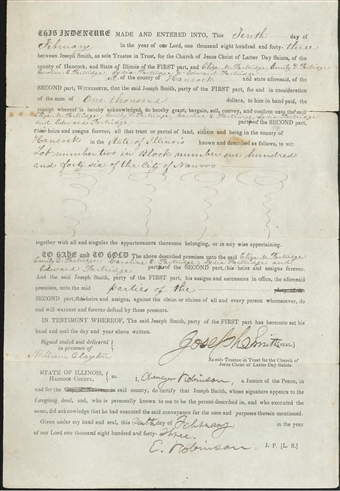 THIS INDENTURE MADE AND ENTERED INTO, This Tenth day of
February in the year of our Lord, one thousand eight hundred and forty- three
between Joseph Smith, as sole Trustee in Trust, for the Church of Jesus Christ of Latter Day Saints, of the
county of Hancock, and State of Illinois of the FIRST part, and Eliza M. Partridge Emily D. Partridge
Caroline E. Partridge, Lydia Partridge & Edward Partridge
of the county of Hancock and state aforesaid, of the
SECOND part, WITNESSETH, that the said Joseph Smith, party of the FIRST part, for and in consideration
of the sum of One thousand dollars, to him in hand paid, the
receipt whereof is hereby acknowledged, do hereby grant, bargain, sell, convey, and confirm unto the said
Eliza M. Partridge, Emily D. Partridge, Caroline E. Partridge, Lydia Partridge
and Edward Partridge part of the SECOND part,
heirs and assigns forever, all that tract or parcel of land, situate and being in the county of
Hancock in the State of Illinois known and described as follows, to wit:
Lot number two in Block number one hundred
and forty six of the City of Nauvoo
together with all and singular the appurtenances thereunto belonging, or in any wise appertaining.
TO HAVE and TO HOLD The above described premises unto the said Eliza M. Partridge
Emily D. Partridge Caroline E. Partridge Lydia Partridge and
Edward Partridge of the SECOND part, heirs and assigns forever.
And the said Joseph Smith, party of the FIRST part, his assigns and successors in office, the aforesaid
premises, unto the said parties of the
SECOND part, heirs and assigns, against the claim or claims of all and every person whomsoever, do
and will warrant and forever defend by these presents.
IN TESTIMONY WHEREOF, The said Joseph Smith, party of the FIRST part has hereunto set his
hand and seal the day and year above written.
Signed sealed and delivered
in presence of
Joseph Smith
William Clayton
As sole Trustee in Trust for the Church of
Jesus Christ of Latter Day Saints.
STATE OF ILLINOIS,
HANCOCK COUNTY, ss I, Ebenezer Robinson, a Justice of the Peace, in
and for the said county, do certify that Joseph Smith, whose signature appears to the
foregoing deed, and, who is personally known to me to be the person described in, and who executed the
same, did acknowledge that he had executed the said conveyance for the uses and purposes therein mentioned.
Given under my hand and seal, this tenth day of February in the year
of our Lord one thousand eight hundred and forty- three.
E. Robinson J. P. [L. S.]